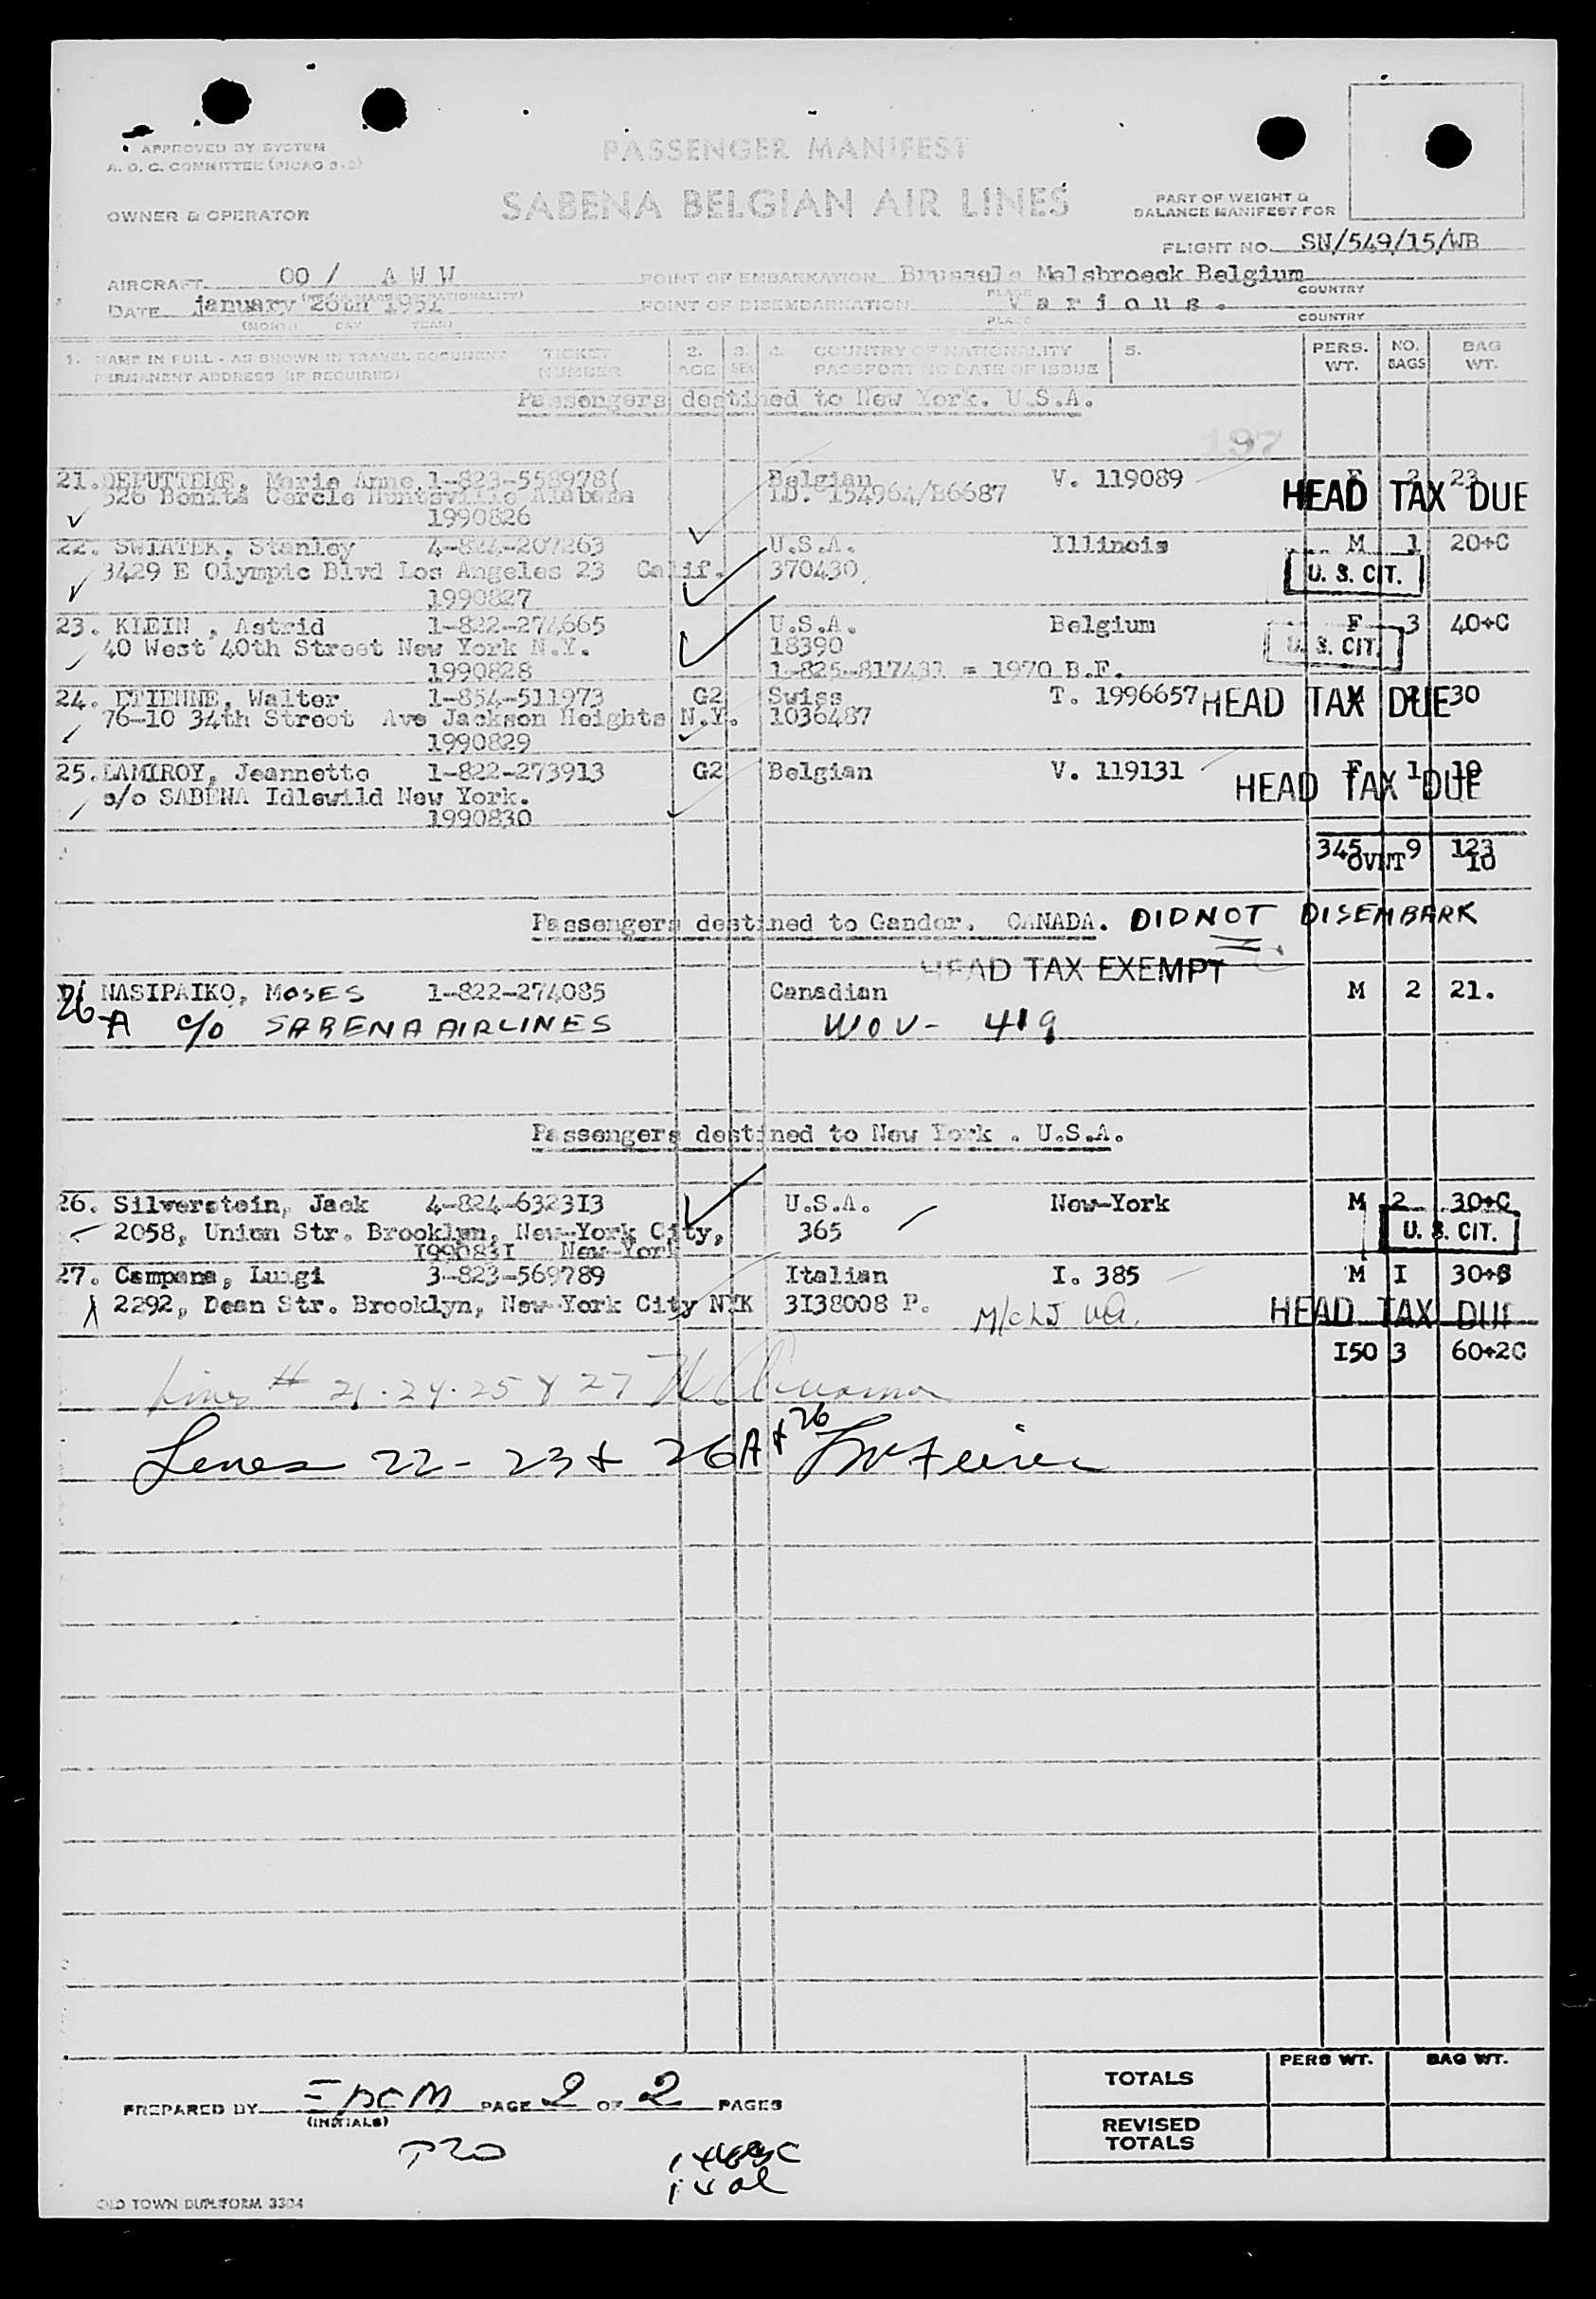 APPROVED BY SYSTEM
A. O. C. COMMITTEE (PICAO 3-2)
PASSENGER MANIFEST
SABENA BELGIAN AIR LINES
OWNER & OPERATOR
PART OF WEIGHT &
BALANCE MANIFEST FOR
FLIGHT NO. SN/549/15/WB
AIRCRAFT OO / A W W POINT OF EMBARKATION Brussels Melsbroeck Belgium
PLACE COUNTRY
DATE january 26th 1951 POINT OF DISEMBARKATION V a r i o u s .
(MONTH DAY YEAR) PLACE COUNTRY
1. NAME IN FULL - AS SHOWN IN TRAVEL DOCUMENT TICKET 2. 3. 4. COUNTRY OF NATIONALITY 5. PERS. NO. BAG
PERMANENT ADDRESS (IF REQUIRED) NUMBER AGE SEX PASSPORT NO DATE OF ISSUE WT. BAGS WT.
Passengers destined to New York. U.S.A.
197
21. DEPUTTERE, Marie Anne 1-823-558978( Belgian V. 119089 F 2 23
326 Bonita Cercle Huntsville Alabama ID. 154964/B6687 HEAD TAX DUE
1990826
22. SWIATEK, Stanley 4-824-207263 U.S.A. Illinois M 1 20+C
3429 E Olympic Blvd Los Angeles 23 Calif. 370430 U. S. CIT.
1990827
23. KLEIN , Astrid 1-822-274665 U.S.A. Belgium F 3 40+C
40 West 40th Street New York N.Y. 18390 U. S. CIT.
1990828 1-825-817431 = 1970 B.F.
24. ETIENNE, Walter 1-854-511973 G2 Swiss T. 1996657 HEAD TAX DUE M 2 30
76-10 34th Street Ave Jackson Heights N.Y. 1036487
1990829
25. LAMIROY, Jeannette 1-822-273913 G2 Belgian V. 119131 F 1 10
c/o SABENA Idlewild New York. HEAD TAX DUE
1990830
345 9 123
OVWT 10
Passengers destined to Gander. CANADA. DID NOT DISEMBARK
HEAD TAX EXEMPT
26 NASIPAIKO, MOSES 1-822-274085 Canadian M 2 21.
A c/o SABENA AIRLINES WOV- 419
Passengers destined to New York . U.S.A.
26. Silverstein, Jack 4-824-632313 U.S.A. New-York M 2 30+C
2058, Union Str. Brooklyn, New-York City, 365 U. S. CIT.
1990831 New-York
27. Campana, Luigi 3-823-569789 Italian I. 385 M I 30+C
2292, Dean Str. Brooklyn, New-York City NYK 3I38008 P. HEAD TAX DUE
I50 3 60+2C
Lines # 21-24-25 & 27
Lines 22 - 23 & 26A & 26
PREPARED BY PAGE 2 OF 2 PAGES
(INITIALS)
TOTALS PERS WT. BAG WT.
REVISED
TOTALS
OLD TOWN DUPLIFORM 3304